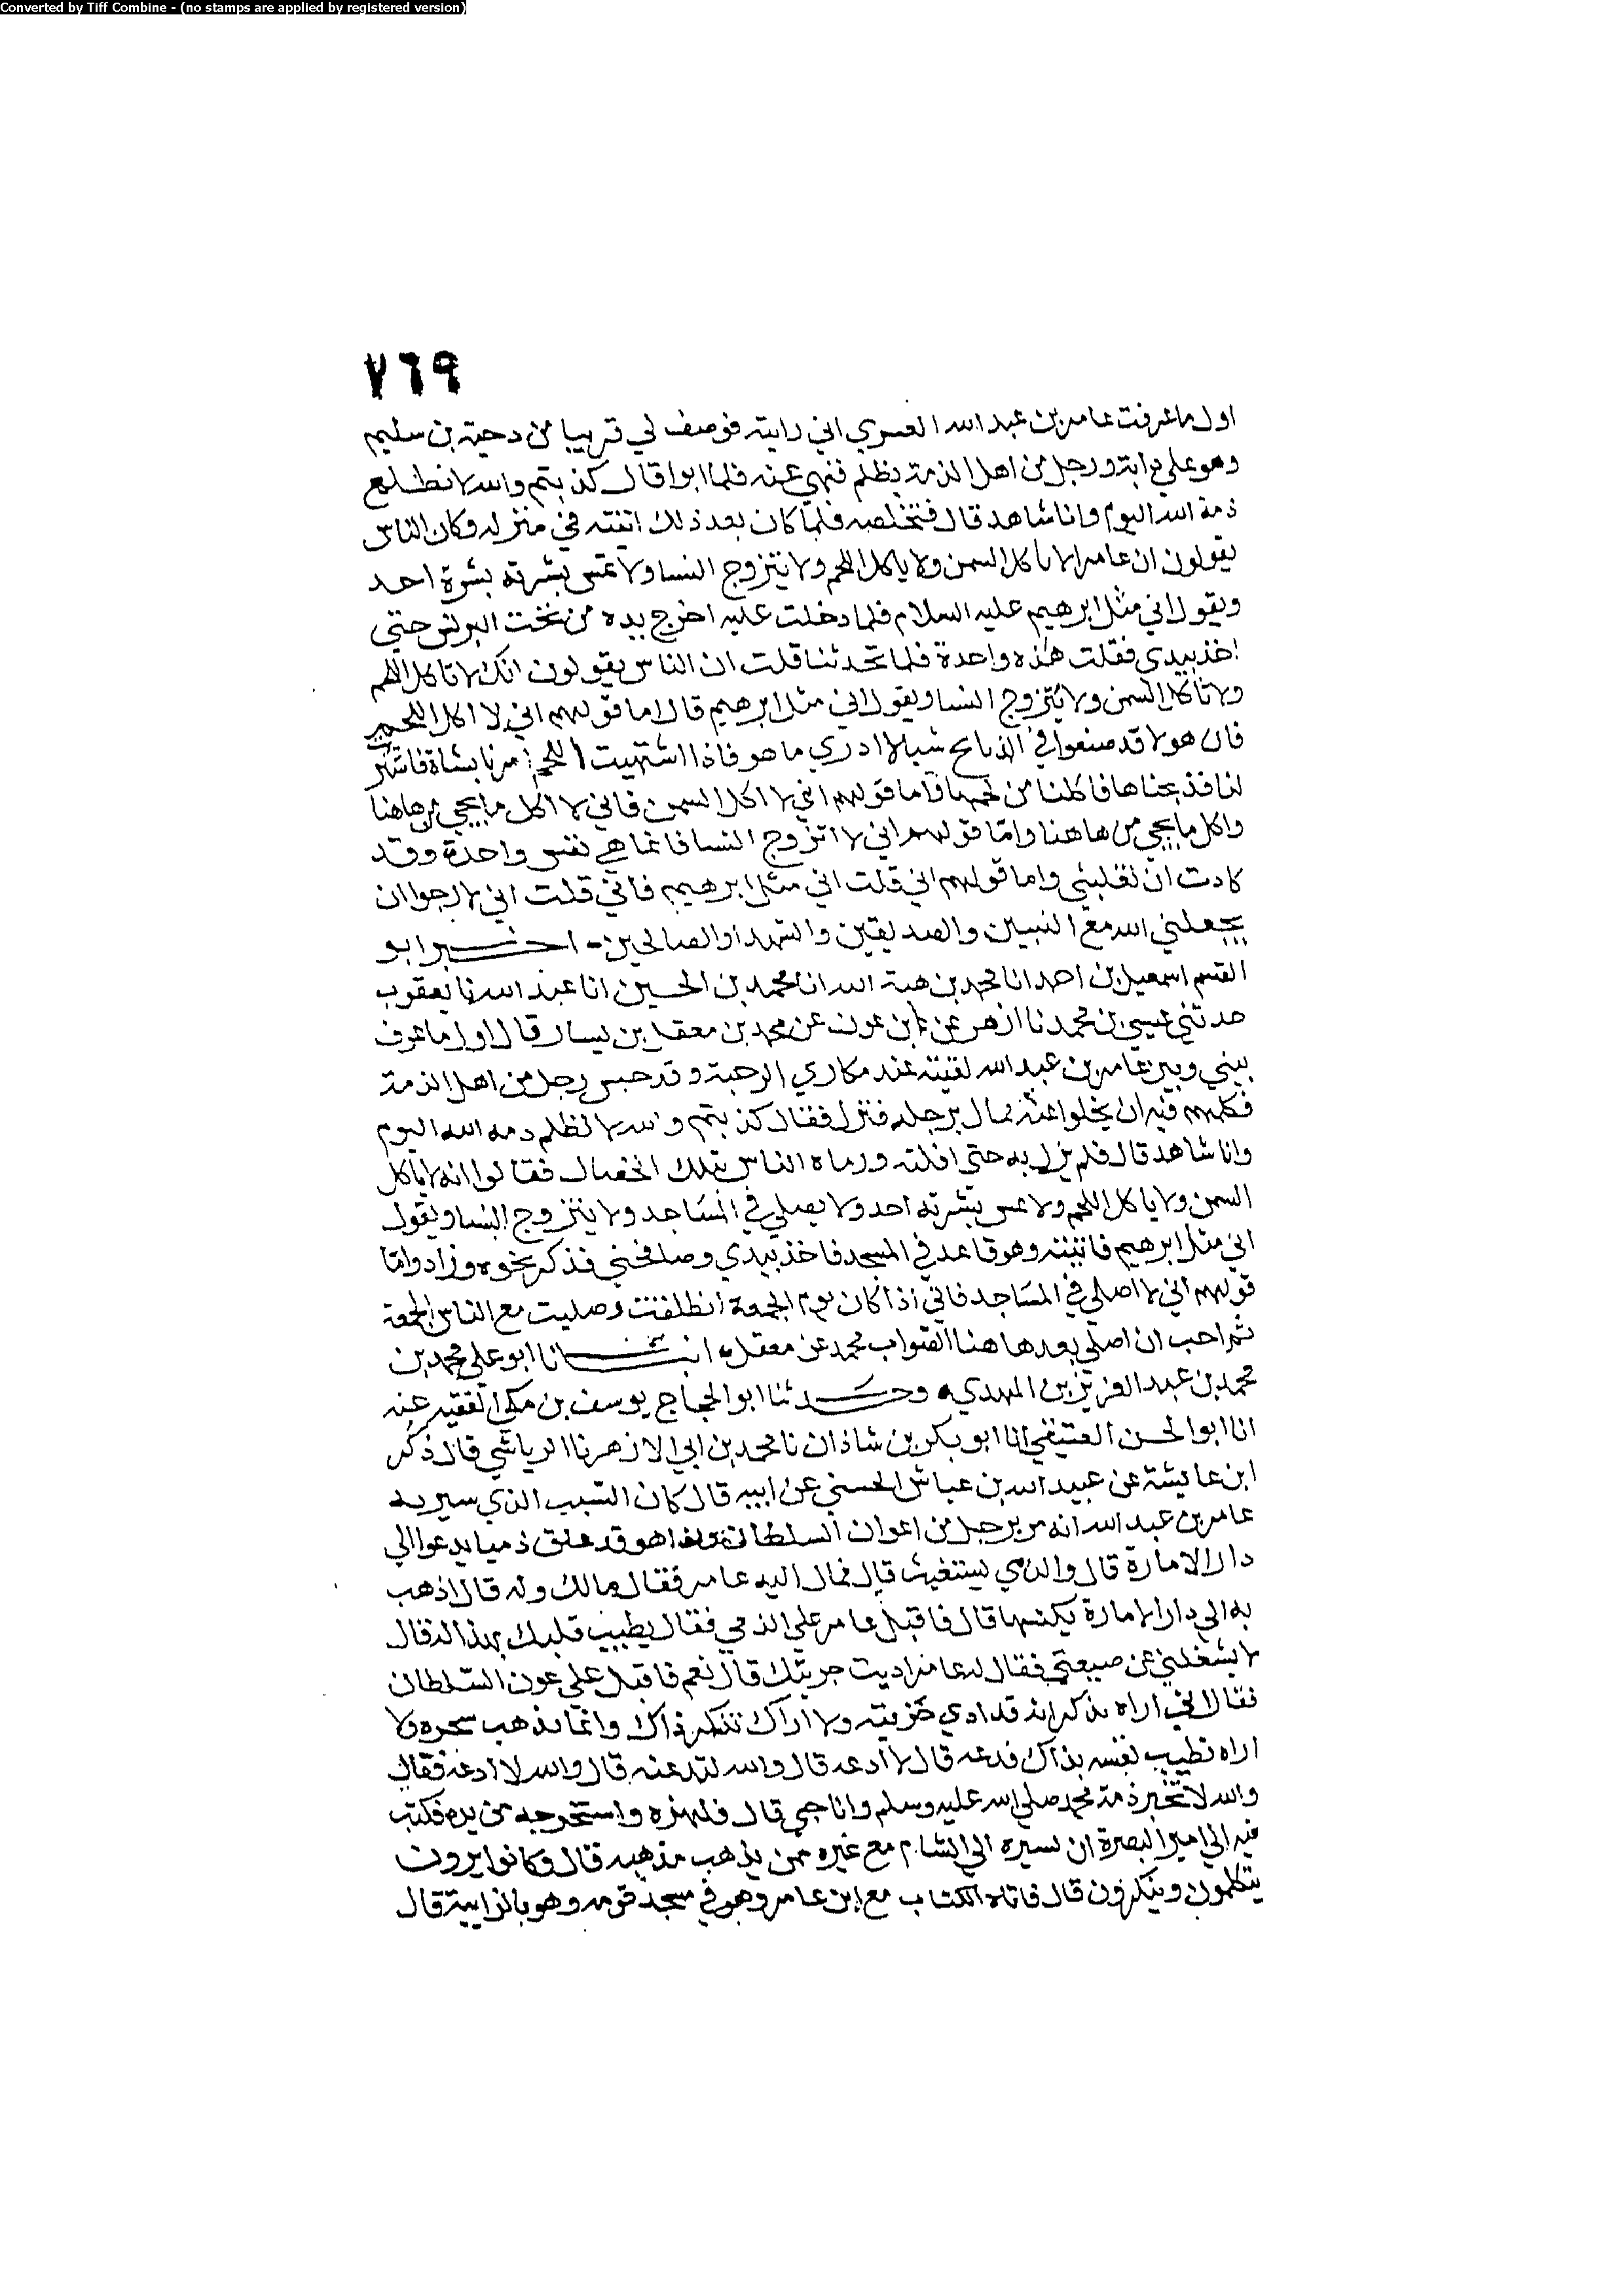 Converted by Tiff Combine - (no stamps are applied by registered version)
٧٦٩
اول ما عرفت عامر بن عبد الله العنبري اني رايته فوصف لي قريبا من دحية بن سليم
وهو على دابته ورجل من اهل الذمة يظلم فنهى عنه فلما ابوا قال كذبتم والله لا تظلم
ذمة الله اليوم وانا شاهد قال فتخلصه فلما كان بعد ذلك اتيته في منزله وكان الناس
يقولون ان عامرا لا ياكل السمن ولا ياكل اللحم ولا يتزوج النسا ولا تمس بشرته بشرة احد
ويقول اني مثل ابرهيم عليه السلام فلما دخلت عليه اخرج يده من تحت البرنس حتى
اخذ بيدي فقلت هذه واحدة فلما تحدثنا قلت ان الناس يقولون انك لا تاكل اللحم
ولا تاكل السمن ولا يتزوج النسا ويقول اني مثل ابرهيم قال اما قولهم اني لا اكل اللحم
فان هولا قد صنعوا في الذبايح شيا لا ادري ما هو فاذا اشتهيت اللحم امرنا بشاة فاشتريت
لنا فذبحناها فاكلنا من لحمها واما قولهم اني لا اكل السمن فاني لا اكل ما يجي من هاهنا
واكل ما يجي من هاهنا واما قولهم اني لا اتزوج النسا فانما هي نفس واحدة وقد
كادت ان تغلبني واما قولهم اني قلت اني مثل ابرهيم فاني قلت اني لارجوا ان
يجعلني الله مع النبيين والصديقين والشهدا والصالحين اخبرنا ابو
القسم اسمعيل بن احمد انا محمد بن هبة الله انا محمد بن الحسين انا عبد الله نا يعقوب
حدثني عيسى بن محمد نا ازهر عن ابن عون عن محمد بن معقل بن يسار قال اول ما عرف
بيني وبين عامر بن عبد الله لقيته عند مكاري الرحبة وقد حبس رجل من اهل الذمة
فكلمهم فيه ان يخلوا عنه فمال برجله فنزل فقال كذبتم والله لا تظلم ذمة الله اليوم
وانا شاهد قال فلم يزل به حتى افلته ورماه الناس بتلك الخصال فقالوا انه لا ياكل
السمن ولا ياكل اللحم ولا تمس بشرته احد ولا يصلي في المساجد ولا يتزوج النسا ويقول
اني مثل ابرهيم فاتيته وهو قاعد في المسجد فاخذ بيدي وصافحني فذكر نحوه وزاد واما
قولهم اني لا اصلي في المساجد فاني اذا كان يوم الجمعة انطلقت وصليت مع الناس الجمعة
ثم احب ان اصلي بعد هاهنا الصواب محمد عن معقل انبانا ابو علي محمد بن
محمد بن عبد العزيز بن المهدي وحدثنا ابو الحجاج يوسف بن مكي الفقيه عنه
انا ابو الحسن العتيقي انا ابو بكر بن شاذان نا محمد بن ابي الازهر نا الرياشي قال ذكر
ابن عايشة عن عبيد الله بن عباش الحسني عن ابيه قال كان السبب الذي سير به
عامر بن عبد الله انه مر برجل من اعوان السلطان واذا هو قد علق ذميا يدعوا الي
دار الامارة قال والذمي يستغيث قال فمال اليه عامر فقال مالك وله قال اذهب
به الي دار الامارة يكنسها قال فاقبل عامر على الذمي فقال يطيب قلبك بهذا له قال
لا يشغلني عن ضيعتي فقال له عامر اديت جزيتك قال نعم فاقبل على عون السلطان
فقال اني اراه يذكر انه قد ادي جزيته ولا اراك تنكر ذاك وانما تذهب سخره ولا
اراه تطيب نفسه بذاك فدعه قال لا ادعه قال والله لتدعنه قال والله لا ادعه فقال
والله لا تخفر ذمة محمد صلي الله عليه وسلم وانا حي قال فلهزه واستخرجه من يده فكتب
فيه الي امير البصرة ان تسيره الي الشام مع غيره ممن يذهب مذهبه قال وكانوا يرون
يتكلمون وينكرون قال فاتاه الكتاب مع ابن عامر وهو في مسجد قومه وهو بالزابية قال